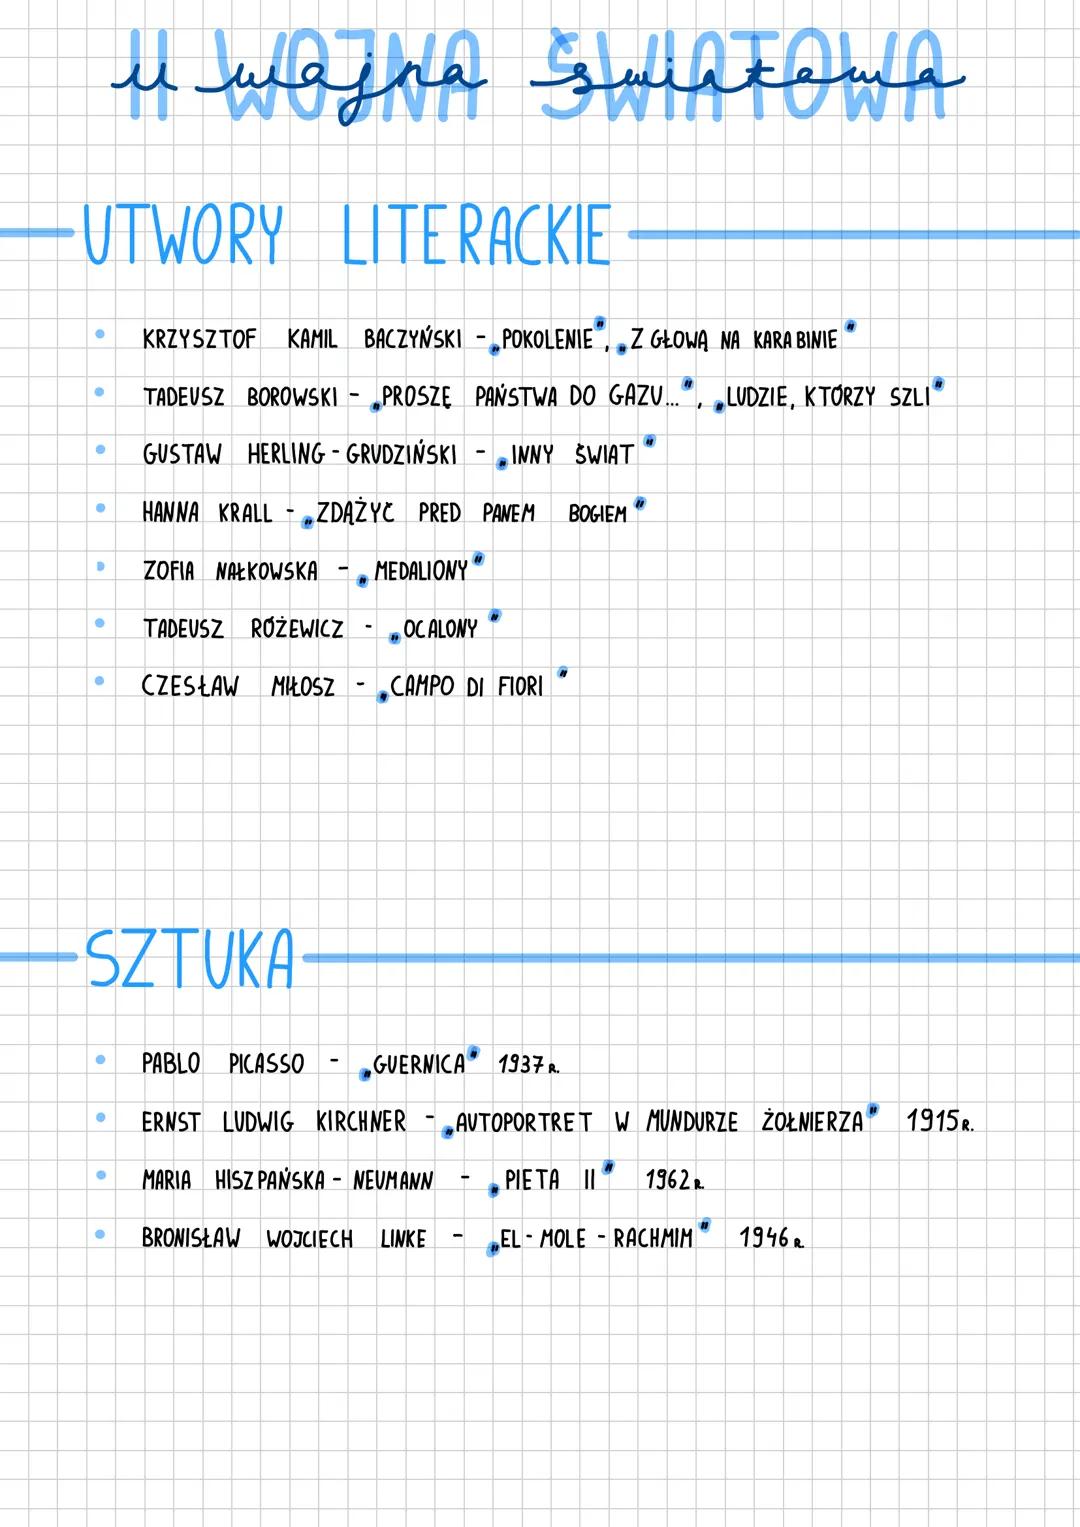 II WOJNA ŚWIATOWA
II wojna światowa
UTWORY LITERACKIE
• KRZYSZTOF KAMIL BACZYŃSKI - „POKOLENIE", „Z GŁOWĄ NA KARABINIE"
• TADEUSZ BOROWSKI - „PROSZĘ PAŃSTWA DO GAZU...", „LUDZIE, KTÓRZY SZLI"
• GUSTAW HERLING - GRUDZIŃSKI - „INNY ŚWIAT"
• HANNA KRALL - „ZDĄŻYĆ PRED PANEM BOGIEM"
• ZOFIA NAŁKOWSKA - „MEDALIONY"
• TADEUSZ RÓŻEWICZ - „OCALONY"
• CZESŁAW MIŁOSZ - „CAMPO DI FIORI"
SZTUKA
• PABLO PICASSO - „GUERNICA" 1937 R.
• ERNST LUDWIG KIRCHNER - „AUTOPORTRET W MUNDURZE ŻOŁNIERZA" 1915 R.
• MARIA HISZPAŃSKA - NEUMANN - „PIETA II" 1962 R.
• BRONISŁAW WOJCIECH LINKE - „EL - MOLE - RACHMIM" 1946 R.